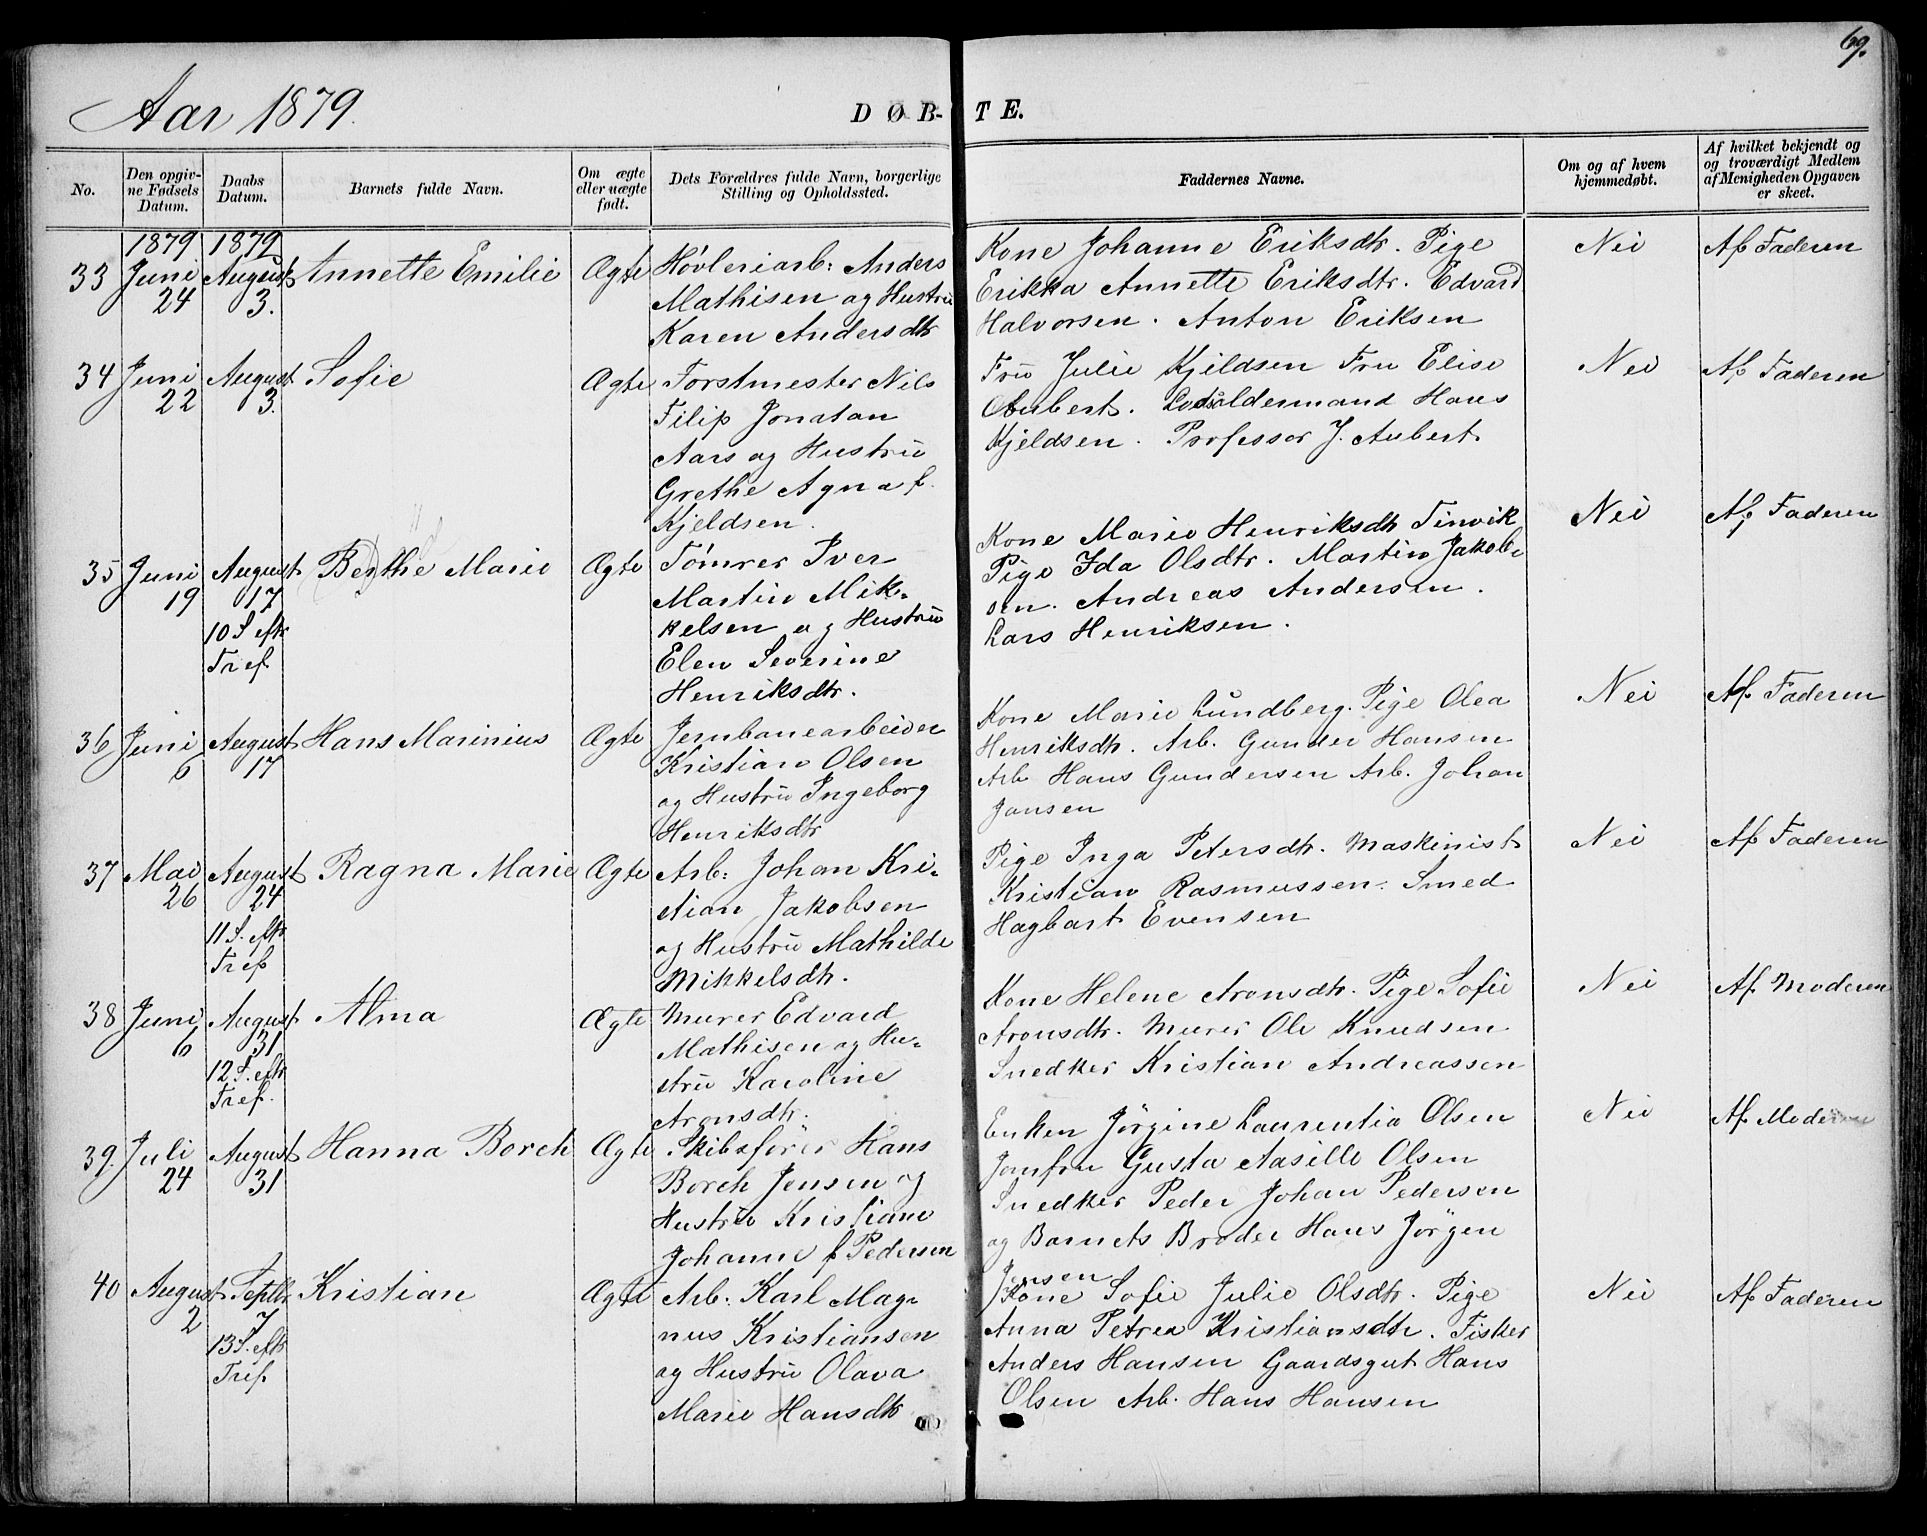 69.
Aar 1879.
DØB-TE.
No.
Den opgiv-
ne Fødsels
Datum.
Daabs
Datum.
Barnets fulde Navn.
Om ægte
eller uægte
født.
Dets Forældres fulde Navn, borgerlige
Stilling og Opholdssted.
Faddernes Navne.
Om og af hvem
hjemmedøbt.
Af hvilket bekjendt og
og troværdigt Medlem
af Menigheden Opgaven
er skeet.
1879 1879
33 Juni
24
August
3.
Annette Emilie
Ægte
Høvleriarb: Anders
Mathisen og Hustru
Karen Andersdtr
Kone Johanne Eriksdtr. Pige
Erikka Annette Eriksdtr. Edvard
Halvorsen. Anton Eriksen
Nei
Af Faderen
34 Juni
22
August
3.
Sofie
Ægte
Forstmester Nils
Filip Jonatan
Aars og Hustru
Grethe Agna f.
Kjeldsen.
Fru Julie Kjeldsen Fru Elise
Aubert. Lodsoldermand Hans
Kjeldsen. Professor J. Aubert
Nei
Af Faderen
35 Juni
19
August
17
10 S. eftr
Tref
Berthe Marie
Ægte
Tømrer Iver
Martin Mik-
kelsen og Hustru
Elen Severine
Henriksdtr.
Kone Marie Henriksdtr Tinvik
Pige Ida Olsdtr. Martin Jakob-
sen. Andreas Andersen.
Lars Henriksen.
Nei
Af Faderen
36 Juni
6
August
17
Hans Marinius
Ægte
Jernbanearbeider
Kristian Olsen
og Hustru Ingeborg
Henriksdtr
Kone Marie Lundberg. Pige Olea
Henriksdtr. Arb. Gunder Hansen
Arb Hans Gundersen Arb. Johan
Jansen
Nei
Af Faderen
37 Mai
26
August
24
11 S. eftr
Tref
Ragna Marie
Ægte
Arb: Johan Kri-
stian Jakobsen
og Hustru Mathilde
Mikkelsdtr.
Pige Inga Petersdtr. Maskinist
Kristian Rasmussen. Smed
Hagbart Evensen
Nei
Af Faderen
38 Juni
6
August
31
12 S. eftr
Tref.
Alma
Ægte
Murer Edvard
Mathisen og Hu-
stru Karoline
Aronsdtr.
Kone Helene Aronsdtr. Pige Sofie
Aronsdtr. Murer Ole Knudsen
Snedker Kristian Andreassen
Nei
Af Moderen
39. Juli
24
August
31
Hanna Borch
Ægte
Skibsfører Hans
Borch Jensen og
Hustru Kristiane
Johanne f Pedersen
Enken Jørgine Laurentia Olsen
Jomfru Gusta Aasille Olsen
Snedker Peder Johan Pedersen
og Barnets Broder Hans Jørgen
Jensen
Nei
Af Moderen
40 August
2
Septbr
7
13 S. eftr
Tref
Kristian
Ægte
Arb: Karl Mag-
nus Kristiansen
og Hustru Olava
Marie Hansdtr
Kone Sofie Julie Olsdtr. Pige
Anna Petrea Kristiansdtr. Fisker
Anders Hansen Gaardsgut Hans
Olsen Arb. Hans Hansen
Nei
Af Faderen